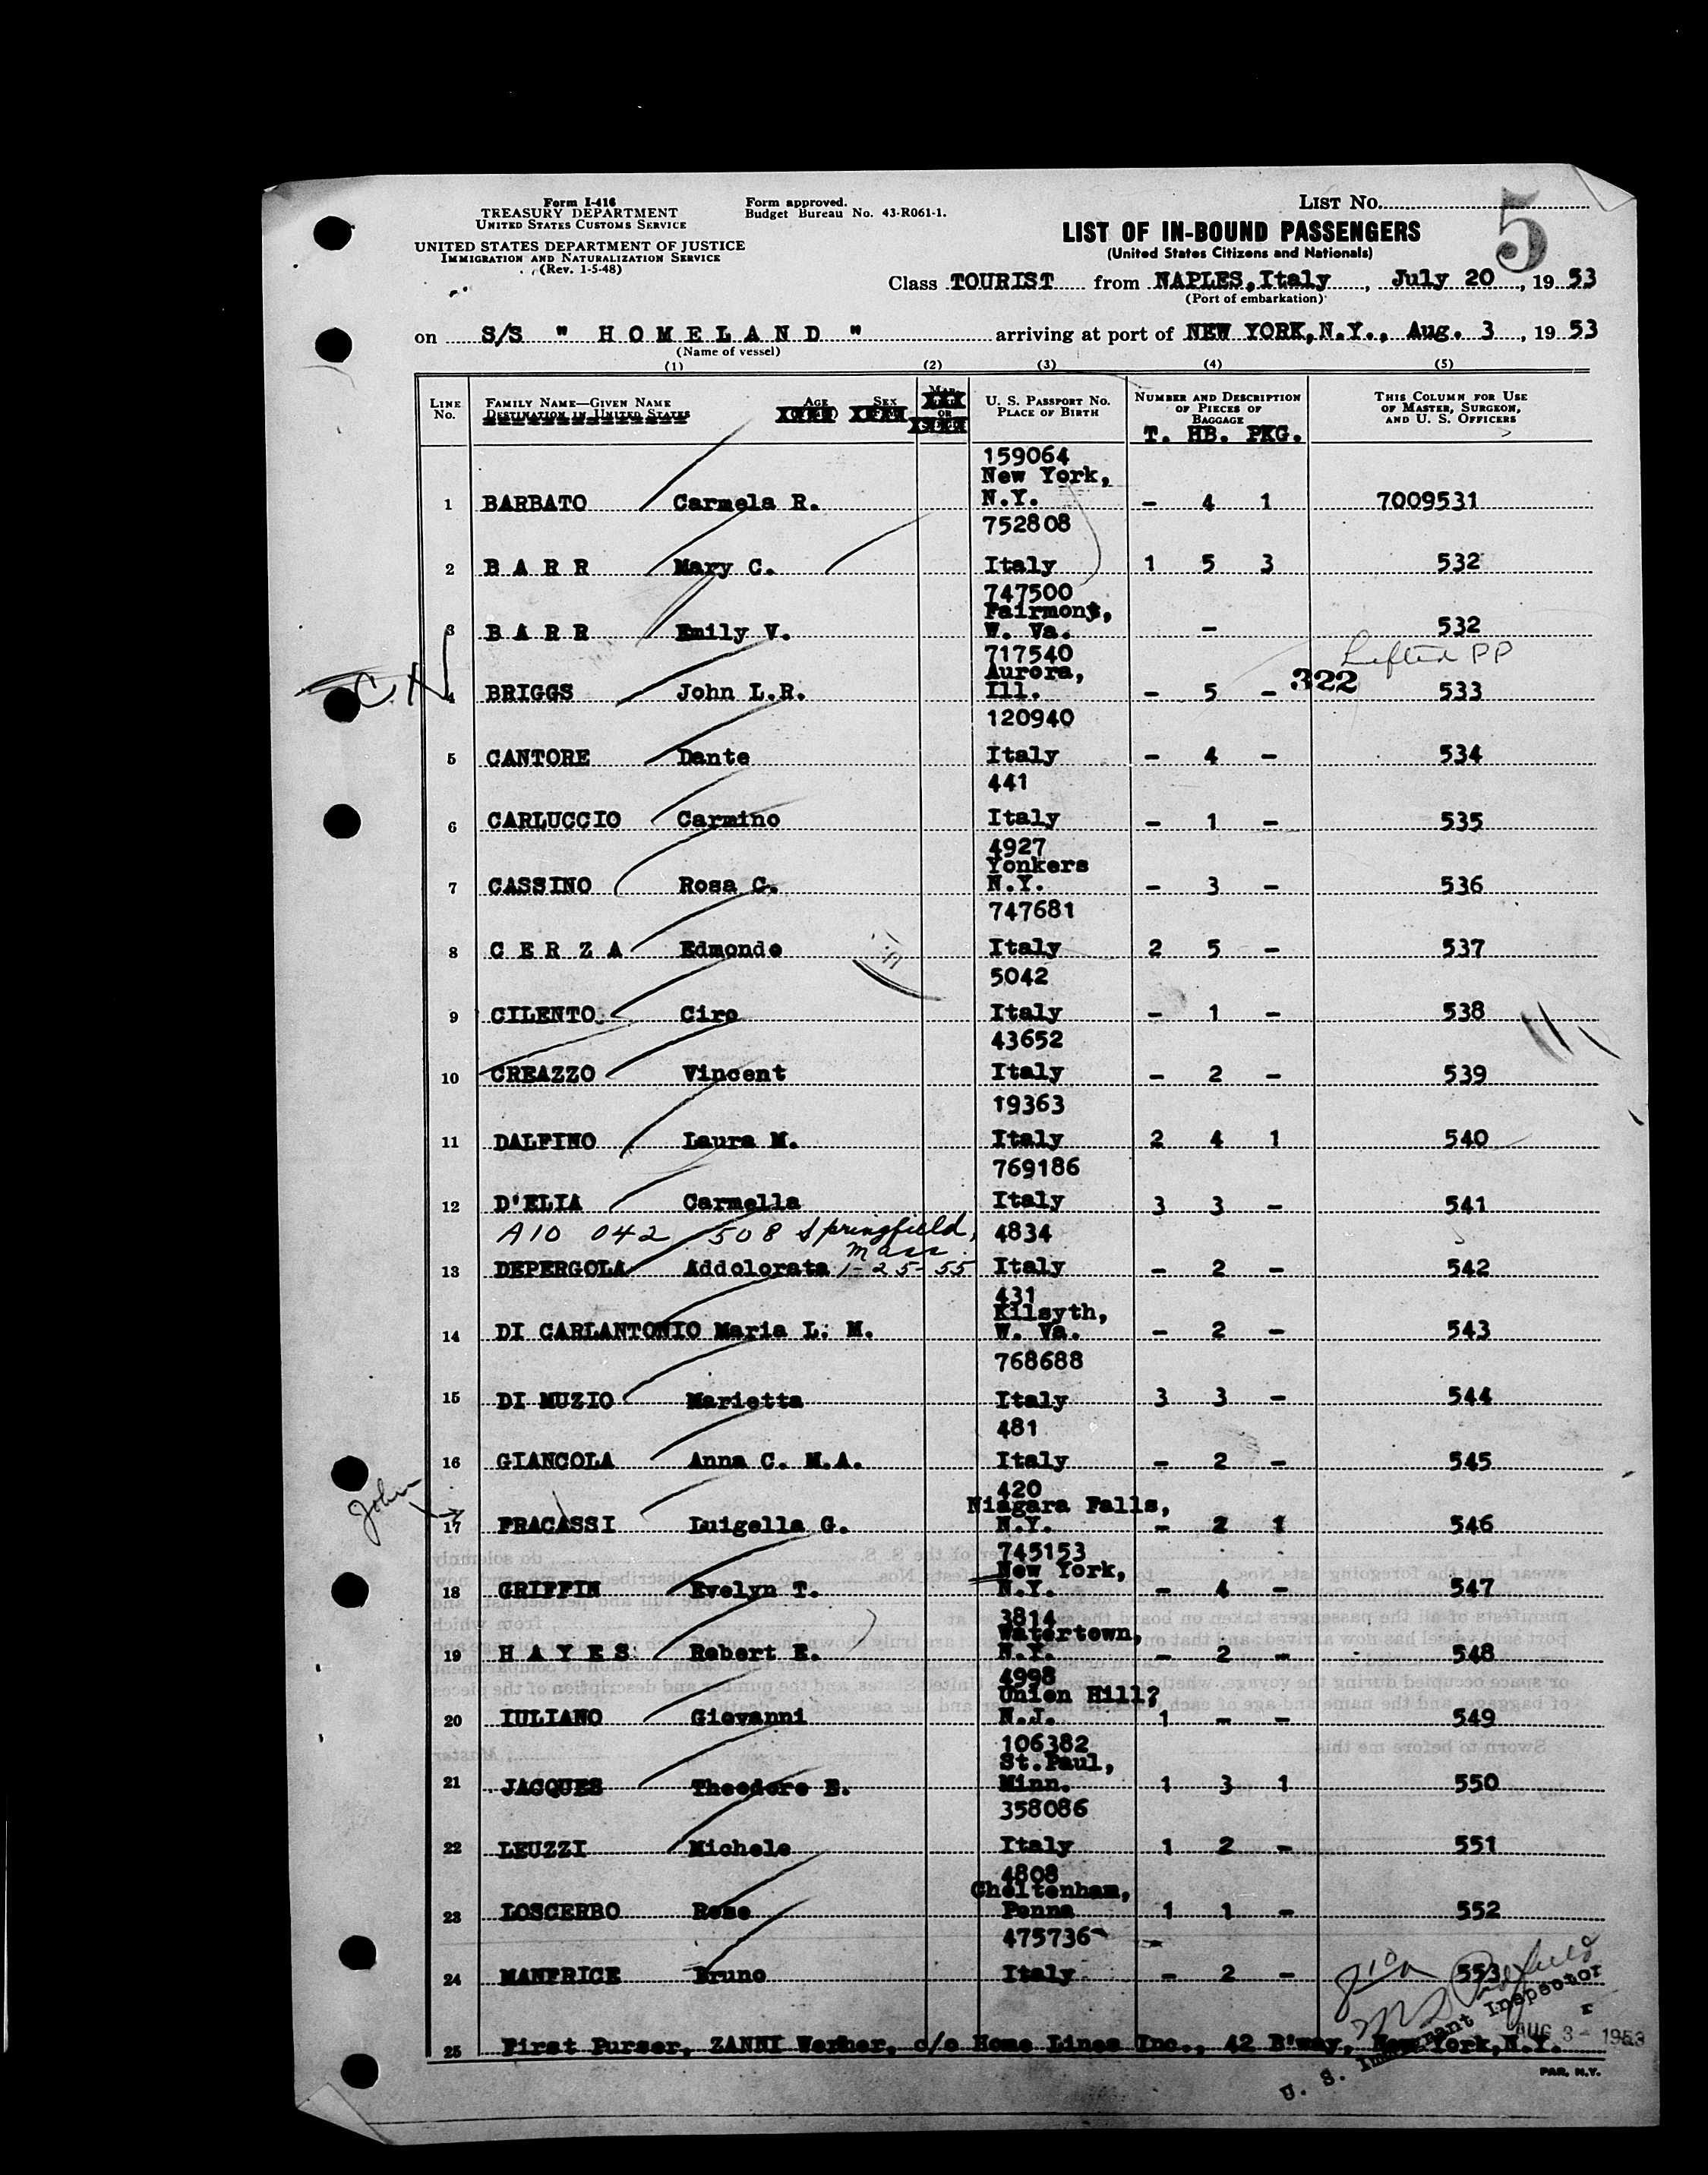 Form I-416
TREASURY DEPARTMENT
UNITED STATES CUSTOMS SERVICE
UNITED STATES DEPARTMENT OF JUSTICE
IMMIGRATION AND NATURALIZATION SERVICE
(Rev. 1-5-48)
Form approved.
Budget Bureau No. 43-R061-1.
LIST NO. 5
LIST OF IN-BOUND PASSENGERS
(United States Citizens and Nationals)
Class TOURIST from NAPLES, Italy, July 20, 1953
(Port of embarkation)
on S/S " H O M E L A N D " arriving at port of NEW YORK, N.Y., Aug. 3, 1953
(Name of vessel)
(1) (2) (3) (4) (5)
LINE NO.
FAMILY NAME—GIVEN NAME
DESTINATION IN UNITED STATES
AGE SEX
MAR. OR
U. S. PASSPORT NO.
PLACE OF BIRTH
NUMBER AND DESCRIPTION OF PIECES OF BAGGAGE
T. HB. PKG.
THIS COLUMN FOR USE OF MASTER, SURGEON, AND U. S. OFFICERS
159064
New York,
1 BARBATO Carmela R. N.Y. - 4 1 7009531
752808
2 B A R R Mary C. Italy 1 5 3 532
747500
Fairmont,
3 B A R R Emily V. W. Va. - 532
717540 Lifted PP
Aurora,
CN 4 BRIGGS John L.R. Ill. - 5 - 322 533
120940
5 CANTORE Dante Italy - 4 - 534
441
6 CARLUCCIO Carmino Italy - 1 - 535
4927
Yonkers
7 CASSINO Rosa C. N.Y. - 3 - 536
747681
8 C E R Z A Edmondo Italy 2 5 - 537
5042
9 CILENTO Ciro Italy - 1 - 538
43652
10 CREAZZO Vincent Italy - 2 - 539
19363
11 DALFINO Laura M. Italy 2 4 1 540
769186
12 D'ELIA Carmella Italy 3 3 - 541
A10 042 508 Springfield, Mass. 4834
13 DEPERGOLA Addolorata 1-25-55 Italy - 2 - 542
431
Kilsyth,
14 DI CARLANTONIO Maria L. M. W. Va. - 2 - 543
768688
15 DI MUZIO Marietta Italy 3 3 - 544
481
16 GIANCOLA Anna C. M.A. Italy - 2 - 545
420
Niagara Falls,
John 17 FRACASSI Luigella G. N.Y. - 2 1 546
745153
New York,
18 GRIFFIN Evelyn T. N.Y. - 4 - 547
3814
Watertown,
19 H A Y E S Robert E. N.Y. - 2 - 548
4998
Union Hill?
20 IULIANO Giovanni N.J. 1 - - 549
106382
St.Paul,
21 JACQUES Theodore E. Minn. 1 3 1 550
358086
22 LEUZZI Michele Italy 1 2 - 551
4808
Cheltenham,
23 LOSCERBO Rose Penna 1 1 - 552
475736
24 MANFRICE Bruno Italy - 2 - 553
25 First Purser, ZANNI Werther, c/o Home Lines Inc., 42 B'way, New York, N.Y.
U. S. Immigrant Inspector
AUG 3 - 1953
PAR, N.Y.